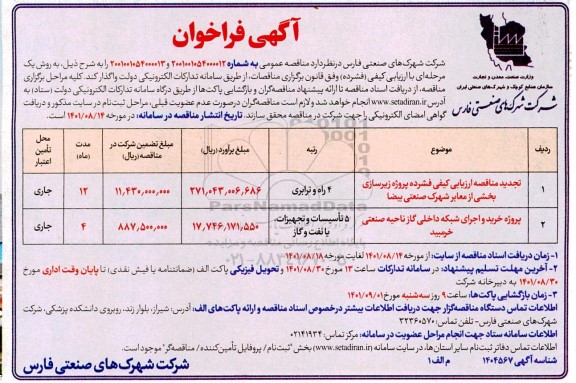 آگهی فراخوان
وزارت صنعت، معدن و تجارت
سازمان صنایع کوچک و شهرک‌های صنعتی ایران
شرکت شهرک‌های صنعتی فارس
شرکت شهرک‌های صنعتی فارس درنظردارد مناقصه عمومی به شماره ۲۰۰۱۰۰۱۰۵۴۰۰۰۰۱۲ و ۲۰۰۱۰۰۱۰۵۴۰۰۰۰۱۳ را به شرح ذیل، به روش یک
مرحله‌ای با ارزیابی کیفی (فشرده) وفق قانون برگزاری مناقصات، از طریق سامانه تدارکات الکترونیکی دولت واگذار کند. کلیه مراحل برگزاری
مناقصه، از دریافت اسناد مناقصه تا ارائه پیشنهاد مناقصه‌گران و بازگشایی پاکت‌ها از طریق درگاه سامانه تدارکات الکترونیکی دولت (ستاد) به
آدرس www.setadiran.ir انجام خواهد شد و لازم است مناقصه‌گران درصورت عدم عضویت قبلی، مراحل ثبت‌نام در سایت مذکور و دریافت
گواهی امضای الکترونیکی را جهت شرکت در مناقصه محقق سازند. تاریخ انتشار مناقصه در سامانه: در مورخه ۱۴۰۱/۰۸/۱۴ است.
ردیف موضوع رتبه مبلغ برآورد (ریال) مبلغ تضمین شرکت در مناقصه (ریال) مدت (ماه) محل تأمین اعتبار
۱ تجدید مناقصه ارزیابی کیفی فشرده پروژه زیرسازی بخشی از معابر شهرک صنعتی بیضا ۴ راه و ترابری ۲۷۱,۰۴۳,۰۰۶,۶۸۶ ۱۱,۴۳۰,۰۰۰,۰۰۰ ۱۲ جاری
۲ پروژه خرید و اجرای شبکه داخلی گاز ناحیه صنعتی خرمبید ۵ تأسیسات و تجهیزات، یا نفت و گاز ۱۷,۷۴۶,۱۷۱,۵۵۰ ۸۸۷,۵۰۰,۰۰۰ ۴ جاری
۱- زمان دریافت اسناد مناقصه از سایت: از مورخه ۱۴۰۱/۰۸/۱۴ لغایت مورخه ۱۴۰۱/۰۸/۱۸
۲- آخرین مهلت تسلیم پیشنهاد: در سامانه تدارکات ساعت ۱۳ مورخ ۱۴۰۱/۰۸/۳۰ و تحویل فیزیکی پاکت الف (ضمانتنامه یا فیش نقدی) تا پایان وقت اداری مورخ
۱۴۰۱/۰۸/۳۰ به دبیرخانه شرکت
۳- زمان بازگشایی پاکت‌ها: ساعت ۹ روز سه‌شنبه مورخ ۱۴۰۱/۰۹/۰۱
اطلاعات تماس دستگاه مناقصه‌گزار جهت دریافت اطلاعات بیشتر درخصوص اسناد مناقصه و ارائه پاکت‌های الف: آدرس: شیراز، بلوار زند، روبروی دانشکده پزشکی، شرکت
شهرک‌های صنعتی فارس- تلفن تماس: ۳۲۳۶۰۵۷۰
اطلاعات تماس سامانه ستاد جهت انجام مراحل عضویت در سامانه: مرکز تماس: ۰۲۱۴۱۹۳۴
اطلاعات تماس دفاتر ثبت‌نام سایر استان‌ها، در سایت سامانه (www.setadiran.ir) بخش "ثبت‌نام / پروفایل تأمین‌کننده / مناقصه‌گر" موجود است.
شناسه آگهی ۱۴۰۴۵۶۷ م الف ۱
شرکت شهرک‌های صنعتی فارس